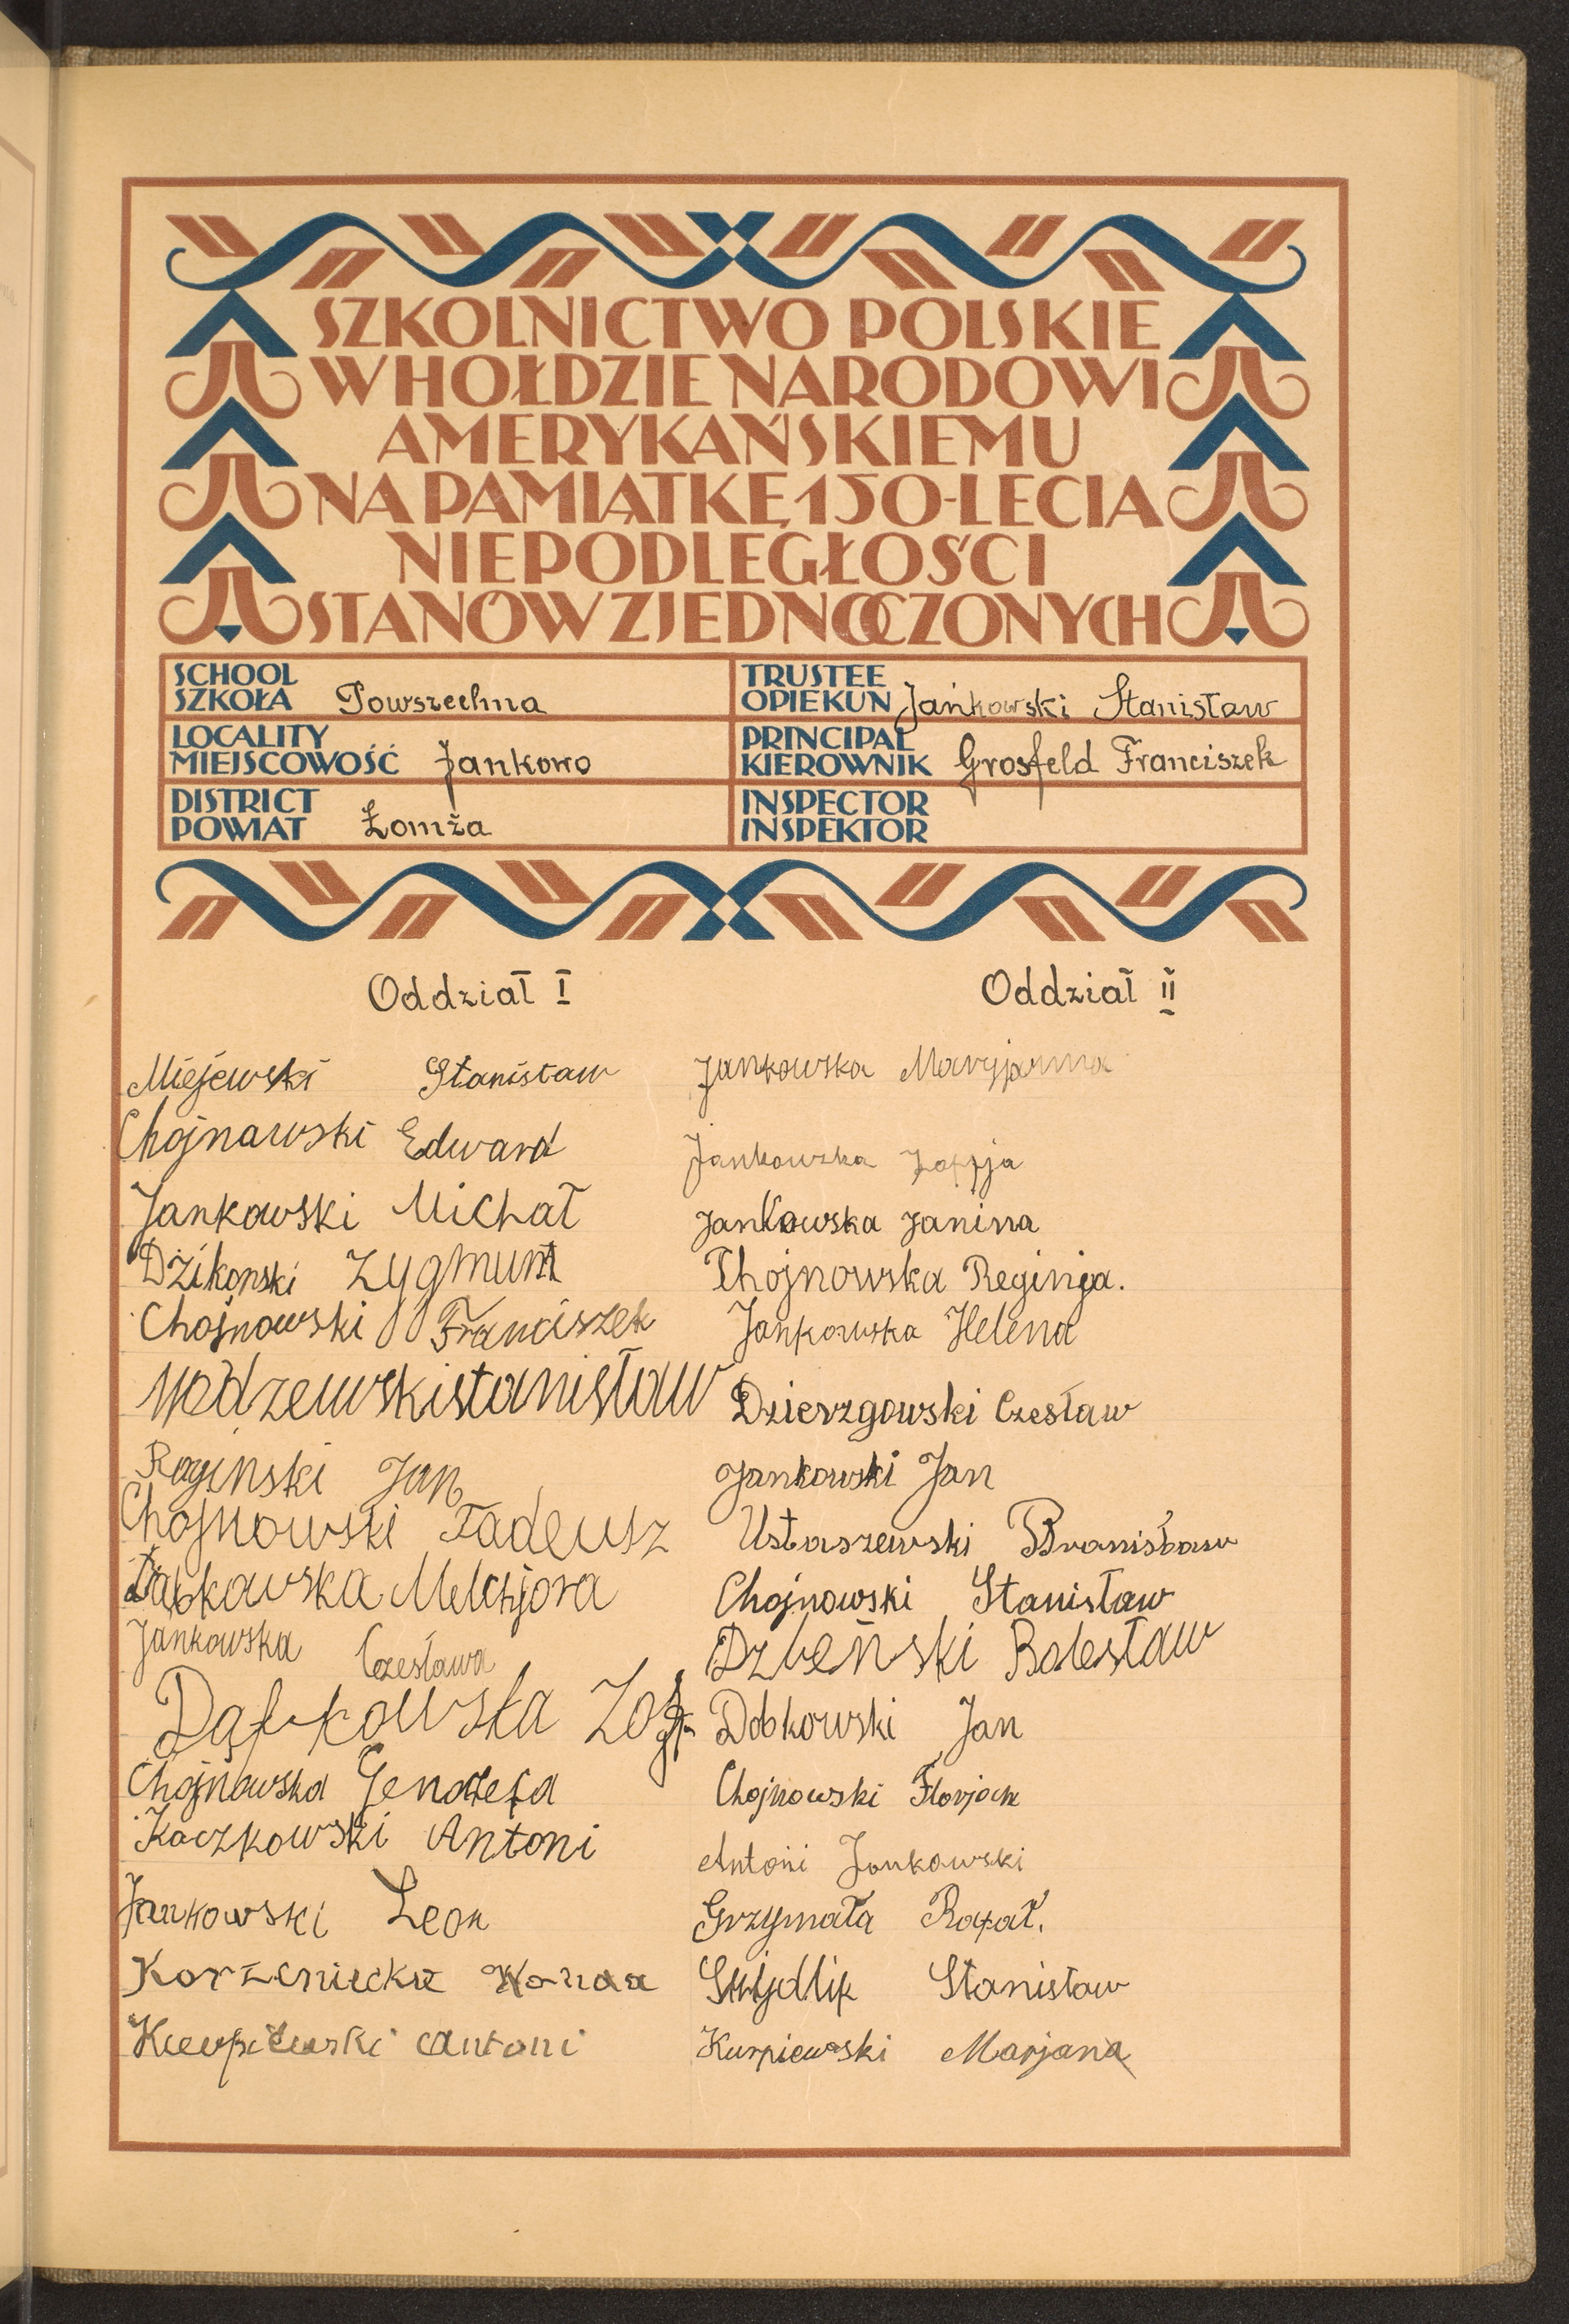 SZKOLNICTWO POLSKIE
W HOŁDZIE NARODOWI
AMERYKAŃSKIEMU
NA PAMIĄTKĘ 150-LECIA
NIEPODLEGŁOŚCI
STANÓW ZJEDNOCZONYCH
SCHOOL
SZKOŁA Powszechna
TRUSTEE
OPIEKUN Jankowski Stanisław
LOCALITY
MIEJSCOWOŚĆ Jankowo
PRINCIPAL
KIEROWNIK Grosfeld Franciszek
DISTRICT
POWIAT Łomża
INSPECTOR
INSPEKTOR
Oddział I
Miejewski Stanisław
Chojnawski Edward
Jankowski Michał
Dzikonski Zygmunt
Chojnowski Franciszek
Modzewskistanisław
Roginski Jan
Chojnowski Tadeusz
Dąbkowska Melchjora
Jankowska Czesława
Dąbkowska
Chojnowska Genowefa
Kaczkowski Antoni
Jankowski Leon
Korzeniecka Wanda
Kurpiewski Antoni
Oddział II
Jankowska Maryjanna
Jankowska Zofja
Jankowska Janina
Chojnowska Reginja.
Jankowska Helena
Dzierzgowski Czesław
Jankowski Jan
Ustaszewski Bronisław
Chojnowski Stanisław
Dzbeński Bolesław
Dobkowski Jan
Chojnowski Florjan
Antoni Jankowski
Grzymała Rafał.
Stanisław
Kurpiewski Marjana